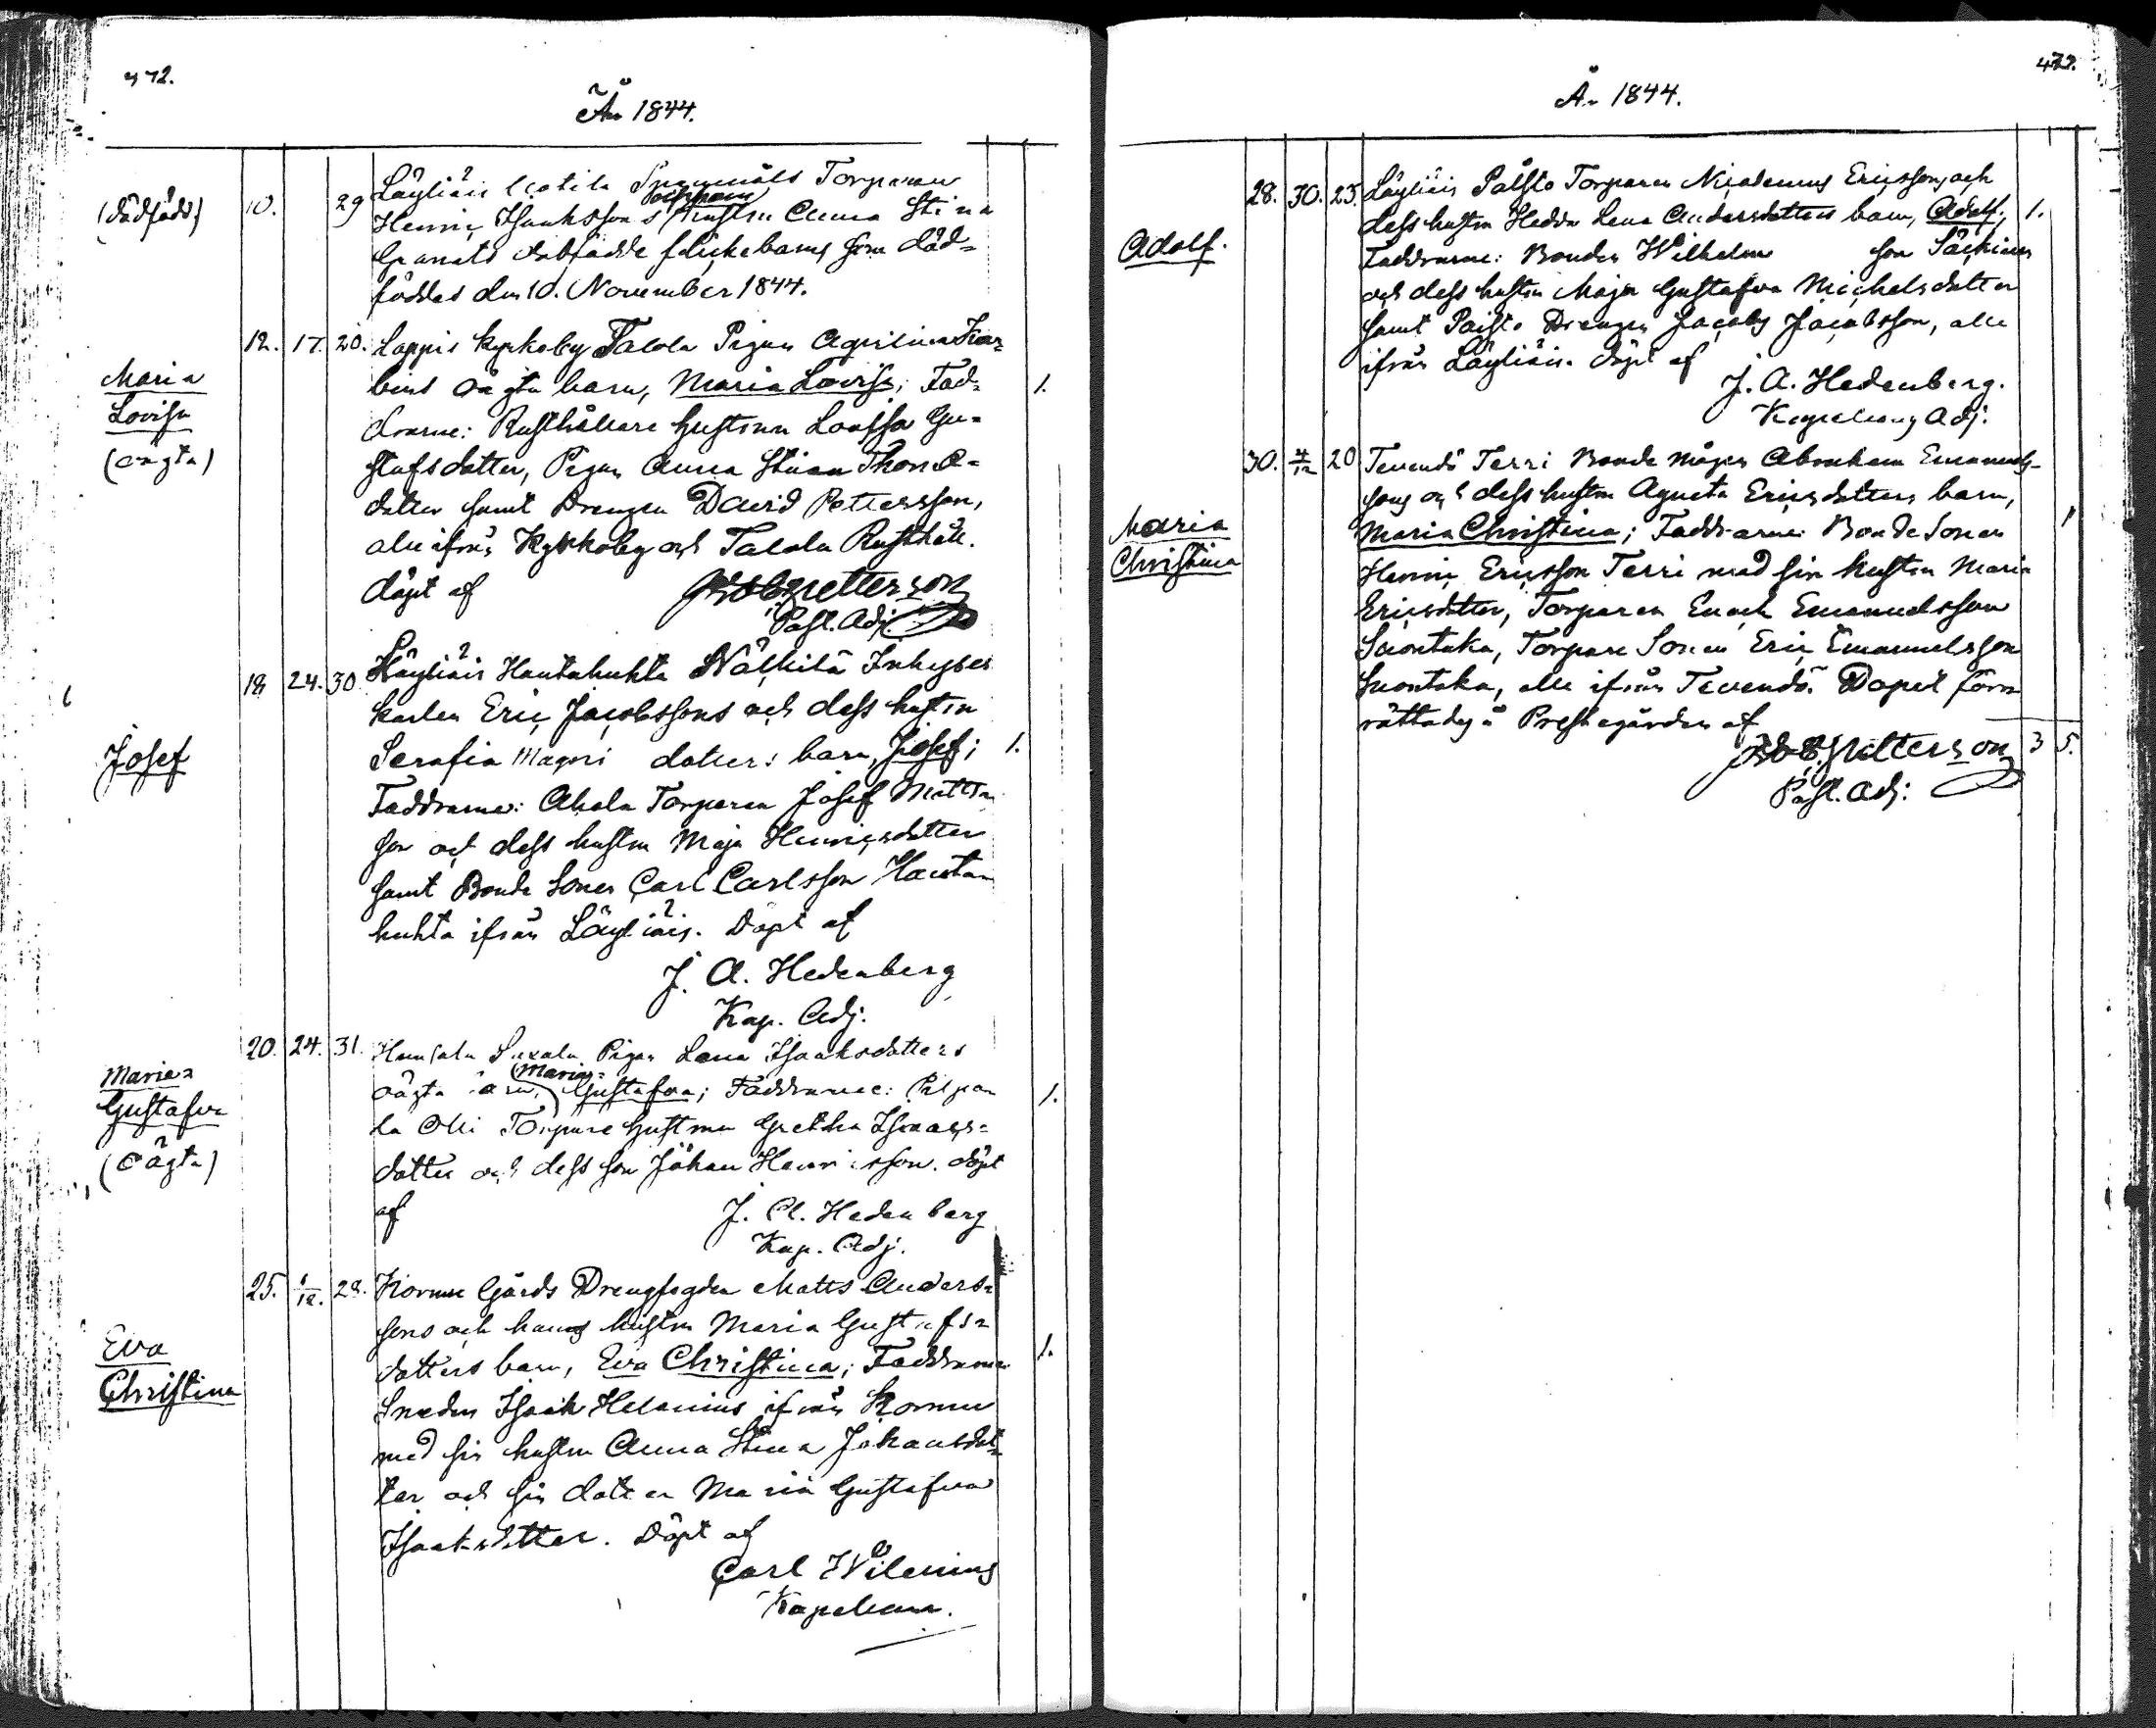 472.
År 1844.
(dödfödd)
10. 29 Läyliäis Torparen
Henric Isaakssons hustru Anna Stina
Granats flickebarn som död=
föddes den 10. November 1844.
Maria
Lovisa
(oägta)
12. 17. 20. Loppis Kyrkoby Talola Pigan
oägta barn, Maria Lovisa; Fad= 1.
drarne: Rusthållare hustrun Lovisa Gu=
stafsdotter, Pigan Anna Stina Thome-
dotter samt Drengen David Pettersson,
alle ifrån Kyrkoby och Talola Rusthåll.
döpt af
Past. Adj.
Josef
18. 24. 30. Läyliäis Hautahuhta Inhyses
karlen Eric Jacobssons och dess hustru
Serafia dotters barn, Josef; 1.
Faddrarne: Ahola Torparen Josef Matts
son och dess hustru Maja Henricsdotter
samt Bonde Sonen Carl Carlsson Hauta
huhta ifrån Läyliäis. Döpt af
J. A. Hedenberg
Kap. Adj.
Maria
Gustafva
(oägta)
20. 24. 31. Pigan Lena Isaksdotters
Maria=
oägta barn, Gustafva; Faddrarne: 1.
la Olli Torpare hustrun Gretha
dotter och dess son Johan Henricsson. döpt
af J. A. Hedenberg
Kap. Adj.
Eva
Christina
25. 1/12. 28. Kormu Gårds Drengfogden Matts Anders=
sons och hans hustru Maria Gustafs=
dotters barn, Eva Christina; Faddrarne 1.
Smeden Isaak Helenius ifrån Kormu
med sin hustru Anna Stina Johansdot=
ter och sin dotter Maria Gustafva
Isaksdotter. Döpt af
Carl Wilenius
Kapellan.
473.
År 1844.
Adolf.
28. 30. 25. Läyliäis Palsto Torparen Nicodemus Ericssons och
dess hustru Hedda Lena Andersdotters barn, Adolf; 1.
Faddrarne: Bonden Wilhelm son Säckinen
och dess hustru Maja Gustafva Michelsdotter
samt Drengen Jacob Jacobsson, alle
ifrån Läyliäis. döpt af
J. A. Hedenberg.
Kapellans Adj.
Maria
Christina
30. 4/12 20 Tevendö Terri Bonde mågen Abraham Emanuels-
sons och dess hustru Agneta Ericsdotters barn,
Maria Christina; Faddrarne: Bonde Sonen 1
Henric Ericsson Terri med sin hustru Maria
Ericsdotter, Torparen Enoch Emanuelsson
Suontaka, Torpare Sonen Eric Emanuelsson
Suontaka, alle ifrån Tevendö. Döpet förr
rättades å Prestegården af
3 5.
Past. Adj: